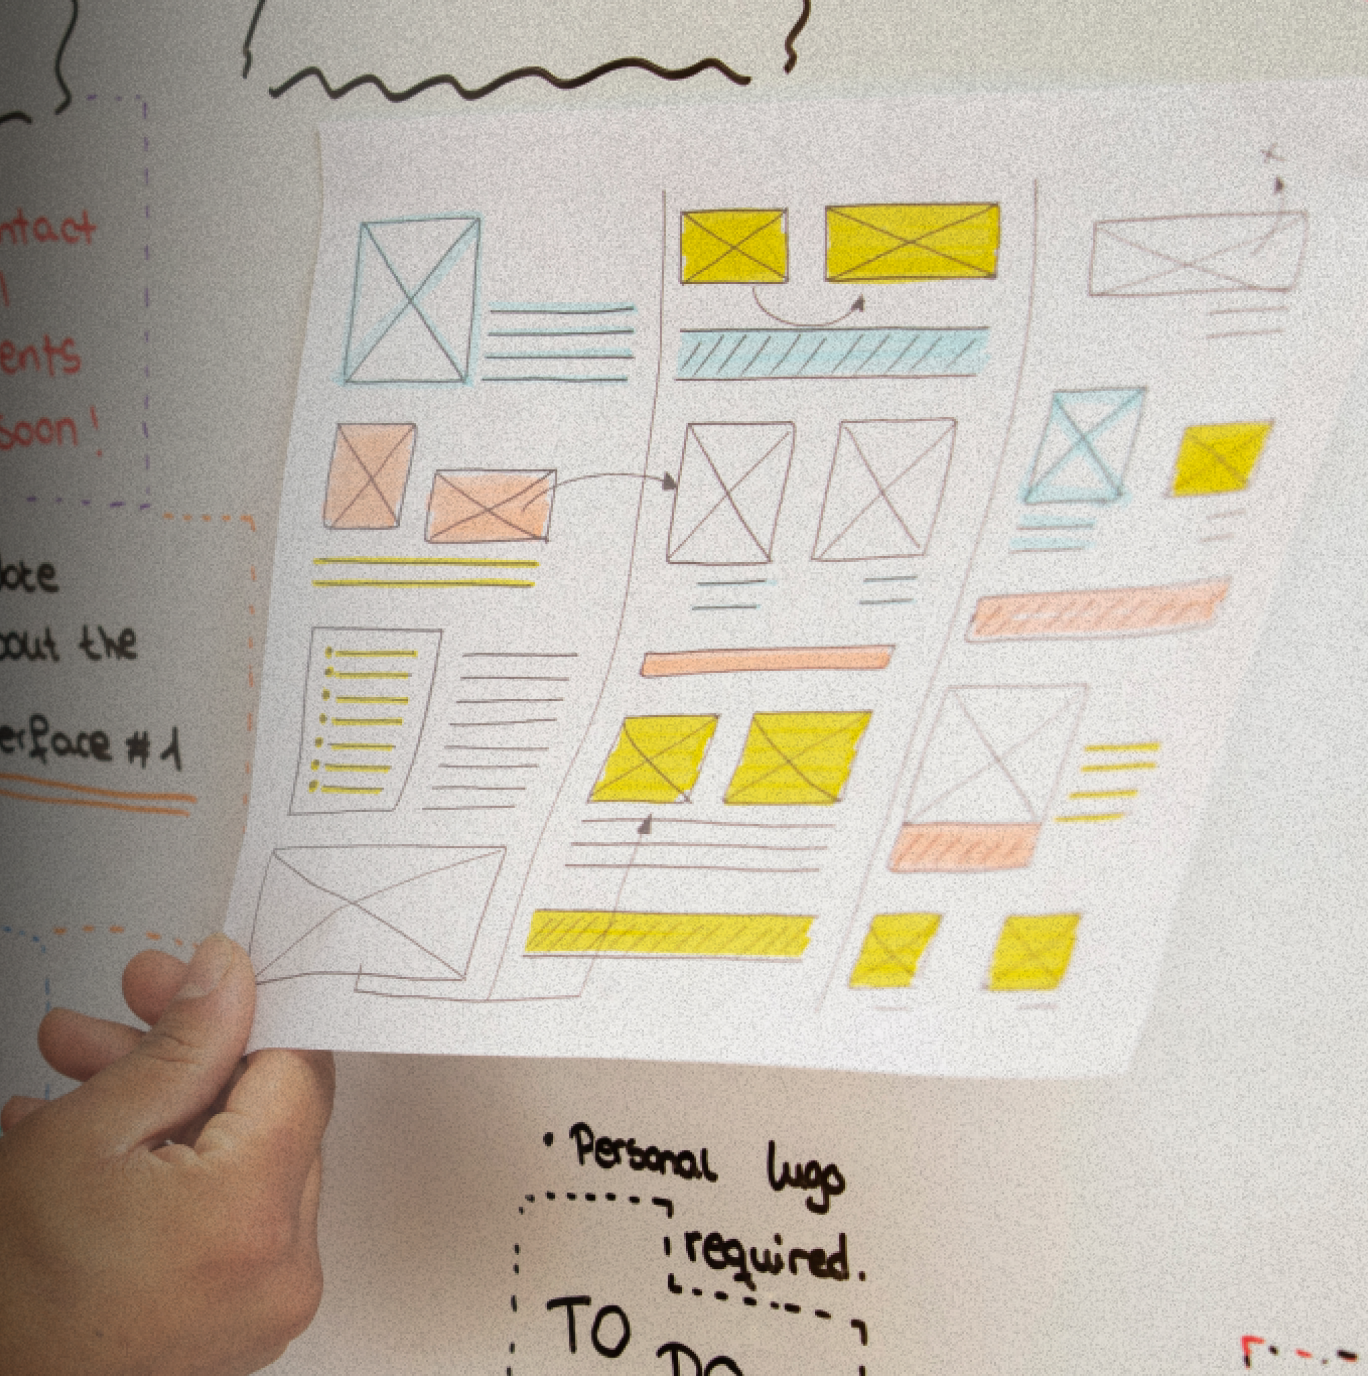 ntact
ents
Soon!
bout the
erface #1
• Personal lugo
required.
TO
DO